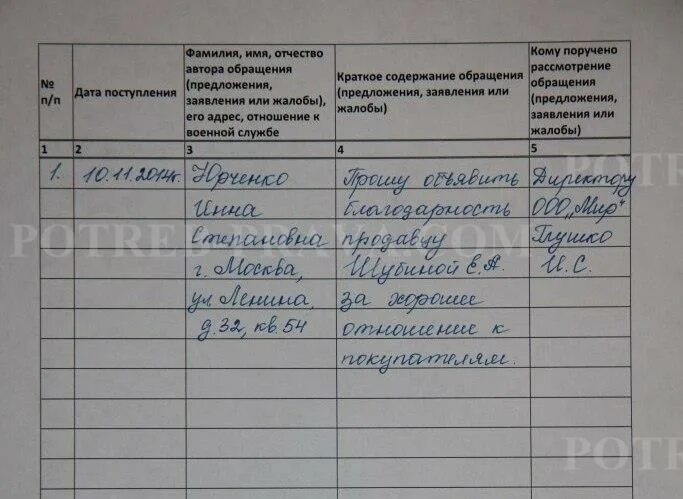 №
п/п
Дата поступления
Фамилия, имя, отчество
автора обращения
(предложения,
заявления или жалобы),
его адрес, отношение к
военной службе
Краткое содержание обращения
(предложения, заявления или
жалобы)
Кому поручено
рассмотрение
обращения
(предложения,
заявления или
жалобы)
1 2 3 4 5
1. 10.11.2014г. Юрченко Прошу объявить Директору
Инна благодарность ООО „Мир“
Степановна продавцу Глушко
г. Москва, Шубиной Е.А. И.С.
ул Ленина, за хорошее
д.32, кв.54 отношение к
покупателям.
POTREB-PRAVA.COM
POTR
POTR